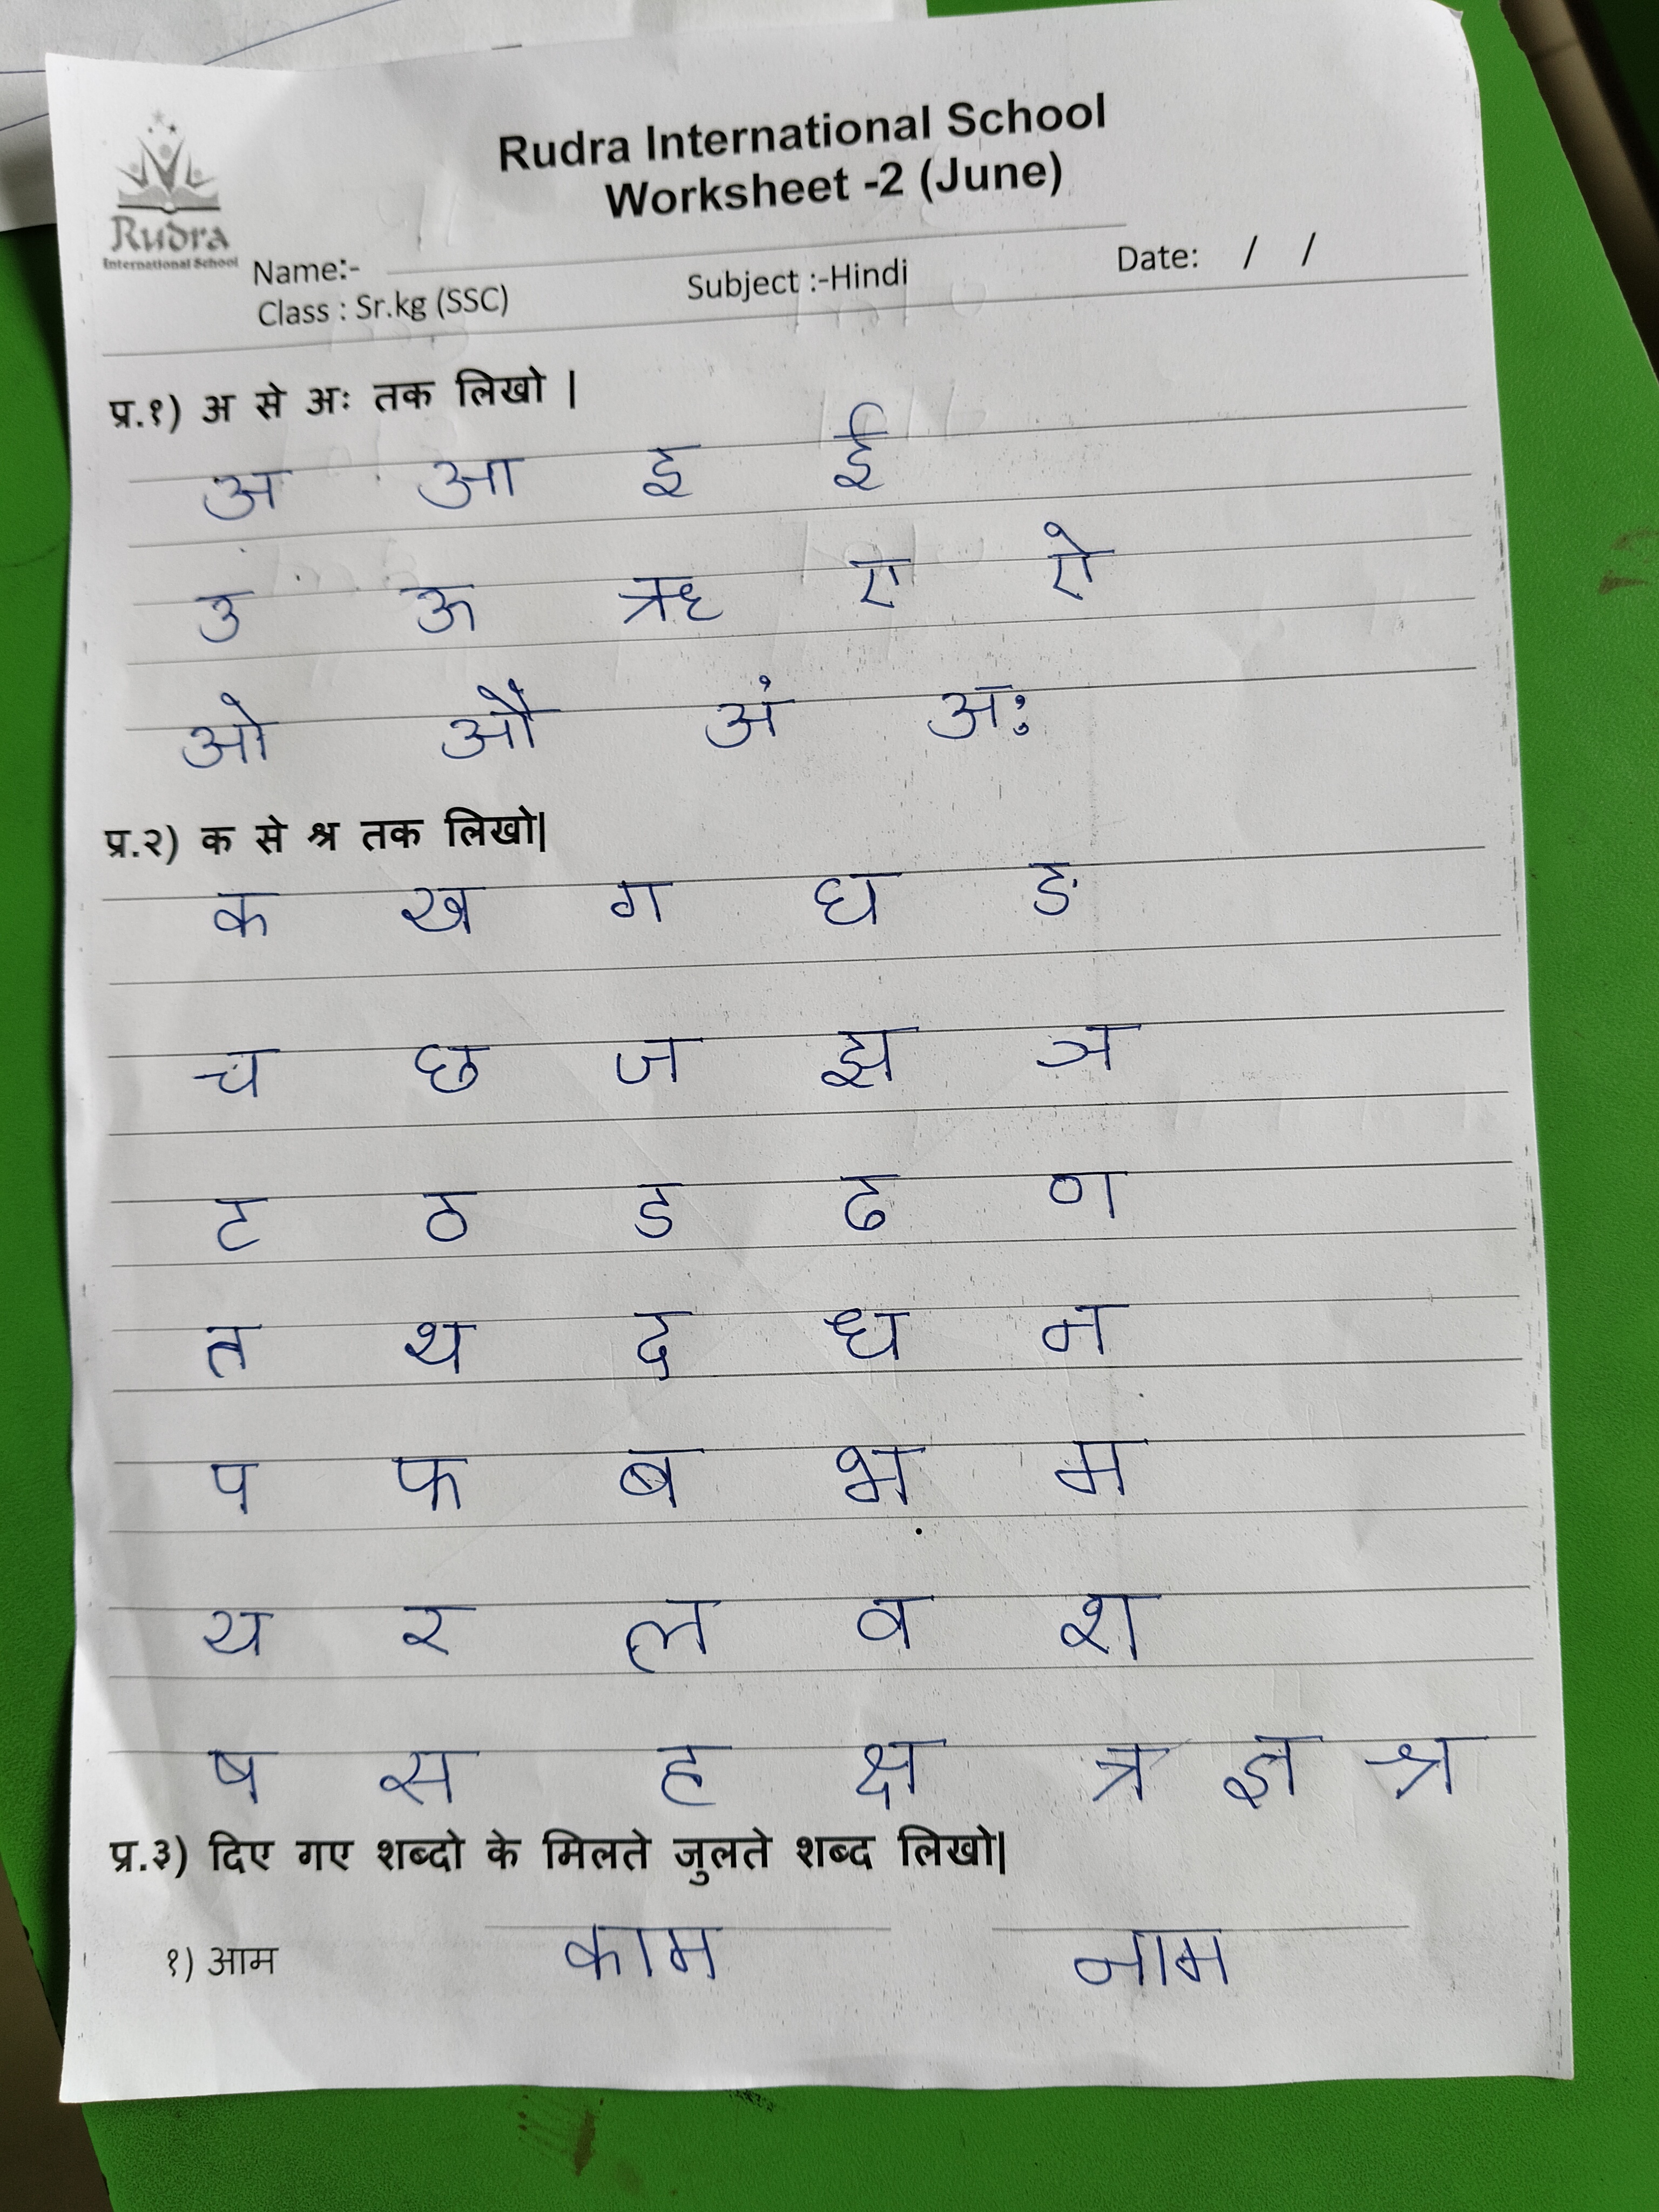 Rudra International School
Worksheet -2 (June)
Rudra
International School
Name:-
Date: / /
Class : Sr.kg (SSC) Subject :-Hindi
प्र.१) अ से अः तक लिखो |
अ आ इ ई
उ ऊ ऋ ए ऐ
ओ औ अं अः
प्र.२) क से श्र तक लिखो|
क ख ग घ ङ
च छ ज झ ञ
ट ठ ड ढ ण
त थ द ध न
प फ ब भ म
य र ल व श
ष स ह क्ष त्र ज्ञ श्र
प्र.३) दिए गए शब्दो के मिलते जुलते शब्द लिखो|
१) आम काम नाम